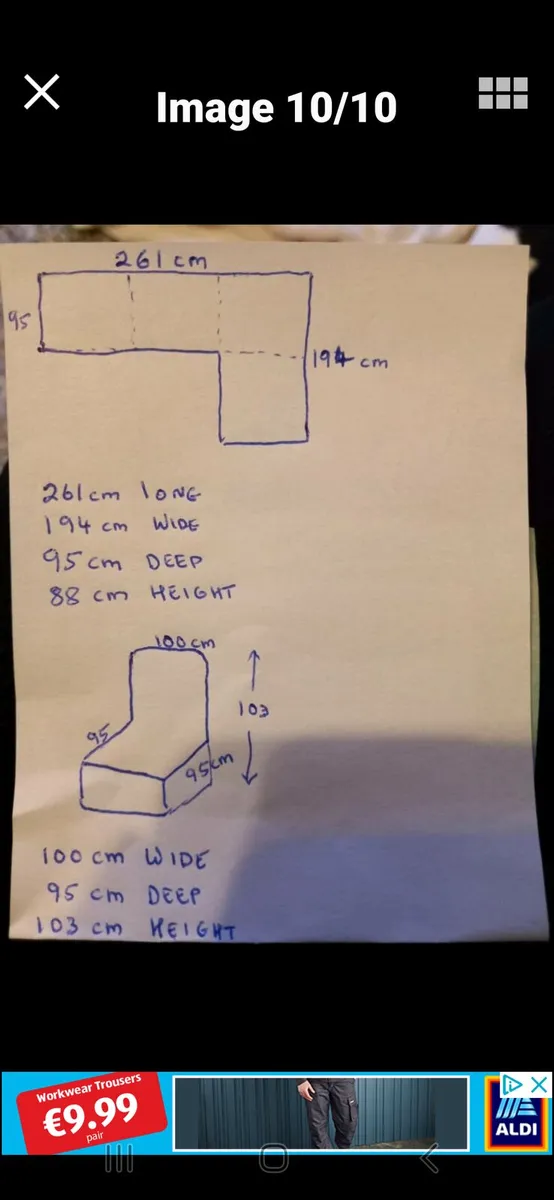 Image 10/10
261 cm
95
194 cm
261 cm LONG
194 cm WIDE
95 cm DEEP
88 cm HEIGHT
100 cm
103
95
95 cm
100 cm WIDE
95 cm DEEP
103 cm HEIGHT
Workwear Trousers
€9.99
pair
ALDI